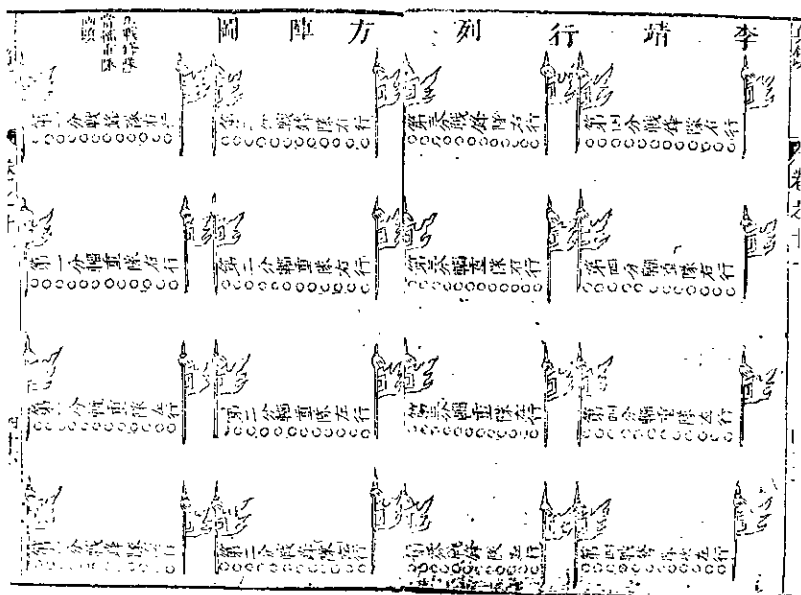 李靖行列方陣圖
第四分戰鋒隊右行
第三分戰鋒隊右行
第二分戰鋒隊右行
第一分戰鋒隊右行
第四分輜重隊右行
第三分輜重隊右行
第二分輜重隊右行
第一分輜重隊右行
第四分輜重隊左行
第三分輜重隊左行
第二分輜重隊左行
第一分輜重隊左行
第四戰鋒隊左行
第三分戰鋒隊左行
第二分戰鋒隊左行
第一分戰鋒隊左行